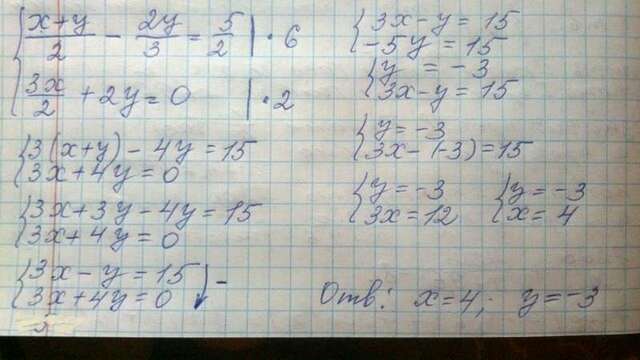 {(x+y)/2 - 2y/3 = 5/2 | · 6
{3x/2 + 2y = 0 | · 2
{3(x+y) - 4y = 15
{3x + 4y = 0
{3x + 3y - 4y = 15
{3x + 4y = 0
{3x - y = 15
{3x + 4y = 0 ↓ -
{3x - y = 15
{-5y = 15
{y = -3
{3x - y = 15
{y = -3
{3x - (-3) = 15
{y = -3
{3x = 12
{y = -3
{x = 4
Отв: x = 4; y = -3